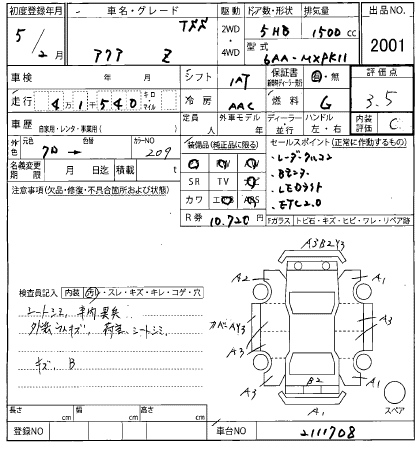 初度登録年月 車名・グレード 駆動 ドア数・形状 排気量 出品NO.
5/2月 アクア Z 2WD・4WD 5HB 1500cc 2001
型式 6AA-MXPK11
車検 年 月 シフト IAT 保証書 有・無 評価点
走行 4万1千540 キロ・マイル 冷房 AAC 燃料 G 3.5
車歴 自家用・レンタ・事業用( ) 定員 人 外車モデル 年 ディーラー・並行 ハンドル 左・右 内装評価 C
外色 元色 クロ→ 色替 カラーNO 209 装備品(純正品に限る) セールスポイント(正常に作動するもの)
名義変更期限 月 日迄 積載 t SR TV
・レーダークルコン
・Bモニタ
・LEDライト
・ETC2.0
注意事項(欠品・修復・不具合箇所および状態) カワ エアB ABS
R券 10,720円 Fガラス トビ石・キズ・ヒビ・ワレ・リペア跡
A3B2Y3
A2 A1
検査員記入 内装 汚・スレ・キズ・キレ・コゲ・穴
シートシミ、車内異臭
外装うすキズ、荷室、シートシミ
キズ、B
カベハAY3 A3
A3 A3
A3 B2 A1
A1 スペア
長さ cm 幅 cm 高さ cm
登録NO 車台NO 2111708